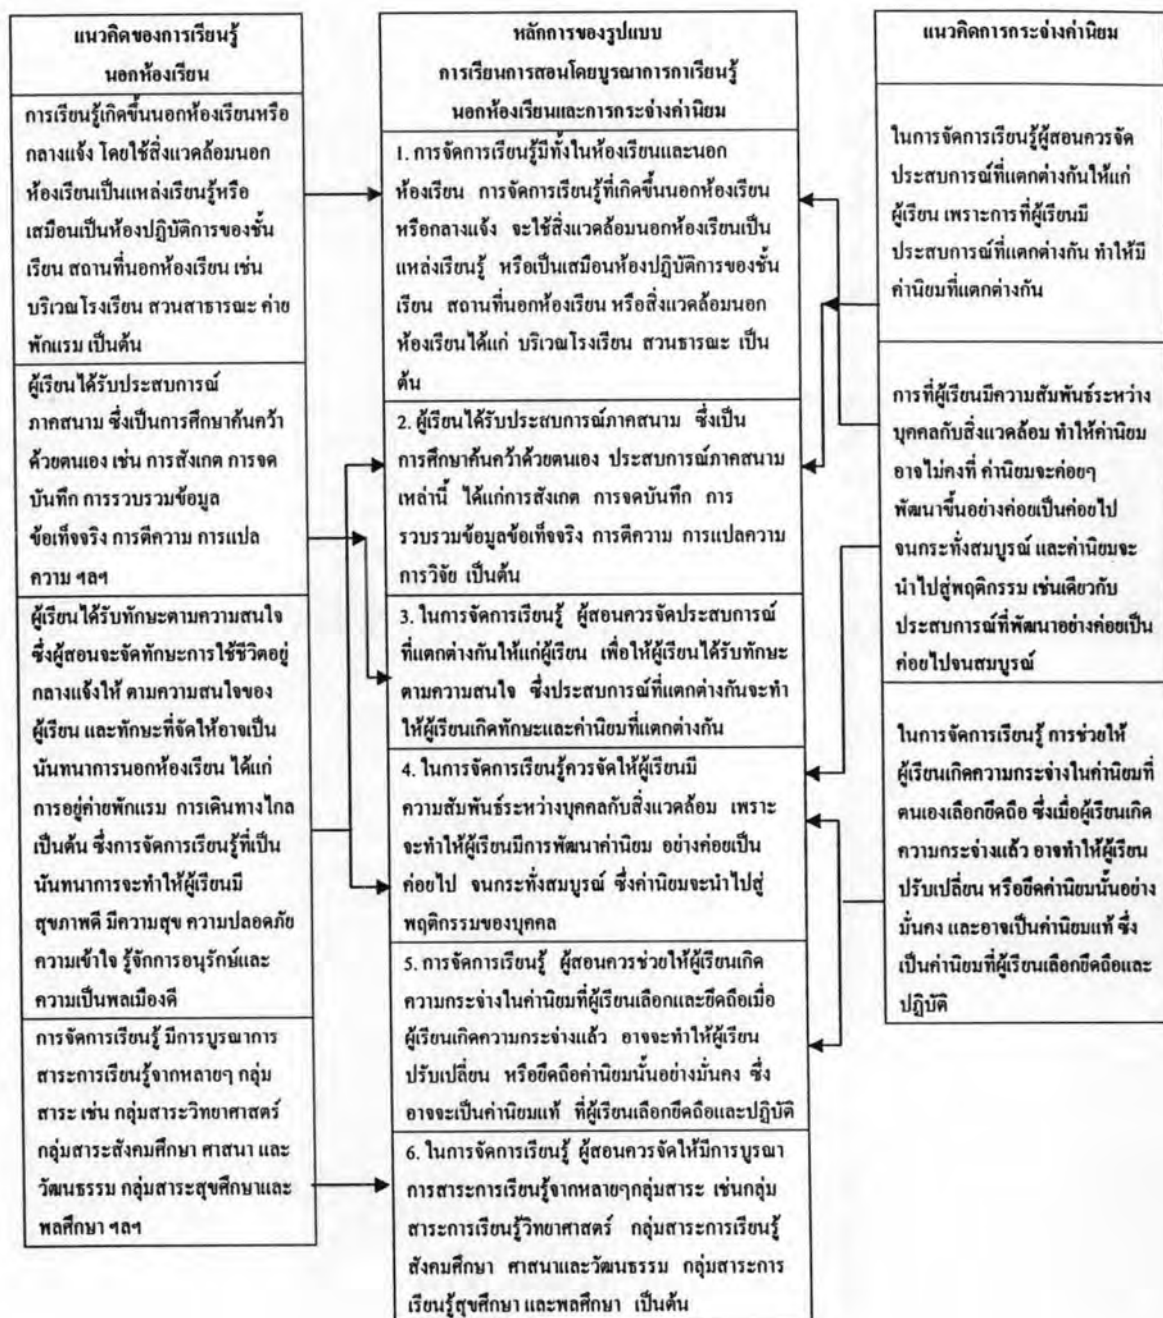 แนวคิดของการเรียนรู้
นอกห้องเรียน
การเรียนรู้เกิดขึ้นนอกห้องเรียนหรือ
กลางแจ้ง โดยใช้สิ่งแวดล้อมนอก
ห้องเรียนเป็นแหล่งเรียนรู้หรือ
เสมือนเป็นห้องปฏิบัติการของชั้น
เรียน สถานที่นอกห้องเรียน เช่น
บริเวณโรงเรียน สวนสาธารณะ ค่าย
พักแรม เป็นต้น
ผู้เรียนได้รับประสบการณ์
ภาคสนาม ซึ่งเป็นการศึกษาค้นคว้า
ด้วยตนเอง เช่น การสังเกต การจด
บันทึก การรวบรวมข้อมูล
ข้อเท็จจริง การตีความ การแปล
ความ ฯลฯ
ผู้เรียนได้รับทักษะตามความสนใจ
ซึ่งผู้สอนจะจัดทักษะการใช้ชีวิตอยู่
กลางแจ้งให้ ตามความสนใจของ
ผู้เรียน และทักษะที่จัดให้อาจเป็น
นันทนาการนอกห้องเรียน ได้แก่
การอยู่ค่ายพักแรม การเดินทางไกล
เป็นต้น ซึ่งการจัดการเรียนรู้ที่เป็น
นันทนาการจะทำให้ผู้เรียนมี
สุขภาพดี มีความสุข ความปลอดภัย
ความเข้าใจ รู้จักการอนุรักษ์และ
ความเป็นพลเมืองดี
การจัดการเรียนรู้ มีการบูรณาการ
สาระการเรียนรู้จากหลายๆ กลุ่ม
สาระ เช่น กลุ่มสาระวิทยาศาสตร์
กลุ่มสาระสังคมศึกษา ศาสนา และ
วัฒนธรรม กลุ่มสาระสุขศึกษาและ
พลศึกษา ฯลฯ
หลักการของรูปแบบ
การเรียนการสอนโดยบูรณาการกาเรียนรู้
นอกห้องเรียนและการกระจ่างค่านิยม
1. การจัดการเรียนรู้มีทั้งในห้องเรียนและนอก
ห้องเรียน การจัดการเรียนรู้ที่เกิดขึ้นนอกห้องเรียน
หรือกลางแจ้ง จะใช้สิ่งแวดล้อมนอกห้องเรียนเป็น
แหล่งเรียนรู้ หรือเป็นเสมือนห้องปฏิบัติการของชั้น
เรียน สถานที่นอกห้องเรียน หรือสิ่งแวดล้อมนอก
ห้องเรียนได้แก่ บริเวณโรงเรียน สวนธารณะ เป็น
ต้น
2. ผู้เรียนได้รับประสบการณ์ภาคสนาม ซึ่งเป็น
การศึกษาค้นคว้าด้วยตนเอง ประสบการณ์ภาคสนาม
เหล่านี้ ได้แก่การสังเกต การจดบันทึก การ
รวบรวมข้อมูลข้อเท็จจริง การตีความ การแปลความ
การวิจัย เป็นต้น
3. ในการจัดการเรียนรู้ ผู้สอนควรจัดประสบการณ์
ที่แตกต่างกันให้แก่ผู้เรียน เพื่อให้ผู้เรียนได้รับทักษะ
ตามความสนใจ ซึ่งประสบการณ์ที่แตกต่างกันจะทำ
ให้ผู้เรียนเกิดทักษะและค่านิยมที่แตกต่างกัน
4. ในการจัดการเรียนรู้ควรจัดให้ผู้เรียนมี
ความสัมพันธ์ระหว่างบุคคลกับสิ่งแวดล้อม เพราะ
จะทำให้ผู้เรียนมีการพัฒนาค่านิยม อย่างค่อยเป็น
ค่อยไป จนกระทั่งสมบูรณ์ ซึ่งค่านิยมจะนำไปสู่
พฤติกรรมของบุคคล
5. การจัดการเรียนรู้ ผู้สอนควรช่วยให้ผู้เรียนเกิด
ความกระจ่างในค่านิยมที่ผู้เรียนเลือกและยึดถือเมื่อ
ผู้เรียนเกิดความกระจ่างแล้ว อาจจะทำให้ผู้เรียน
ปรับเปลี่ยน หรือยึดถือค่านิยมนั้นอย่างมั่นคง ซึ่ง
อาจจะเป็นค่านิยมแท้ ที่ผู้เรียนเลือกยึดถือและปฏิบัติ
6. ในการจัดการเรียนรู้ ผู้สอนควรจัดให้มีการบูรณา
การสาระการเรียนรู้จากหลายๆกลุ่มสาระ เช่นกลุ่ม
สาระการเรียนรู้วิทยาศาสตร์ กลุ่มสาระการเรียนรู้
สังคมศึกษา ศาสนาและวัฒนธรรม กลุ่มสาระการ
เรียนรู้สุขศึกษา และพลศึกษา เป็นต้น
แนวคิดการกระจ่างค่านิยม
ในการจัดการเรียนรู้ผู้สอนควรจัด
ประสบการณ์ที่แตกต่างกันให้แก่
ผู้เรียน เพราะการที่ผู้เรียนมี
ประสบการณ์ที่แตกต่างกัน ทำให้มี
ค่านิยมที่แตกต่างกัน
การที่ผู้เรียนมีความสัมพันธ์ระหว่าง
บุคคลกับสิ่งแวดล้อม ทำให้ค่านิยม
อาจไม่คงที่ ค่านิยมจะค่อยๆ
พัฒนาขึ้นอย่างค่อยเป็นค่อยไป
จนกระทั่งสมบูรณ์ และค่านิยมจะ
นำไปสู่พฤติกรรม เช่นเดียวกับ
ประสบการณ์ที่พัฒนาอย่างค่อยเป็น
ค่อยไปจนสมบูรณ์
ในการจัดการเรียนรู้ การช่วยให้
ผู้เรียนเกิดความกระจ่างในค่านิยมที่
ตนเองเลือกยึดถือ ซึ่งเมื่อผู้เรียนเกิด
ความกระจ่างแล้ว อาจทำให้ผู้เรียน
ปรับเปลี่ยน หรือยึดค่านิยมนั้นอย่าง
มั่นคง และอาจเป็นค่านิยมแท้ ซึ่ง
เป็นค่านิยมที่ผู้เรียนเลือกยึดถือและ
ปฏิบัติ